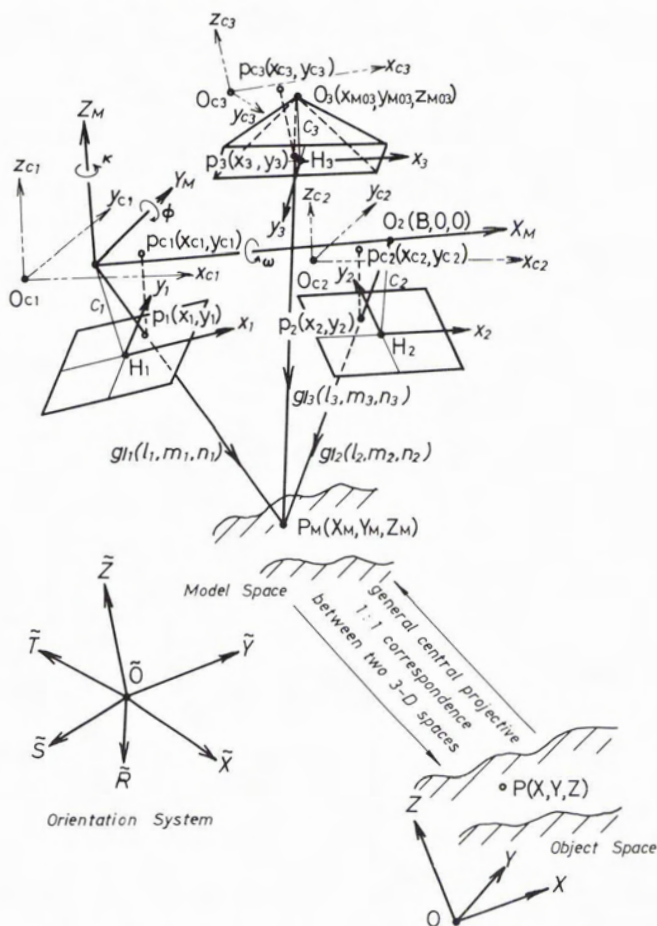 z_C3
p_C3(x_C3, y_C3)
x_C3
O_C3
y_C3
O_3(x_M03, y_M03, z_M03)
C_3
p_3(x_3, y_3)
H_3
x_3
y_3
Z_M
κ
z_C1
y_C1
Y_M
ϕ
p_C1(x_C1, y_C1)
O_C1
x_C1
C_1
y_1
p_1(x_1, y_1)
x_1
H_1
z_C2
y_C2
O_2(B, 0, 0)
X_M
ω
p_C2(x_C2, y_C2)
O_C2
x_C2
y_2
C_2
p_2(x_2, y_2)
H_2
x_2
g_l3(l_3, m_3, n_3)
g_l1(l_1, m_1, n_1)
g_l2(l_2, m_2, n_2)
P_M(X_M, Y_M, Z_M)
Model Space
general central projective
1:1 correspondence
between two 3-D spaces
Z̃
T̃
Õ
Ỹ
S̃
R̃
X̃
Orientation System
P(X, Y, Z)
Z
Object Space
Y
X
O